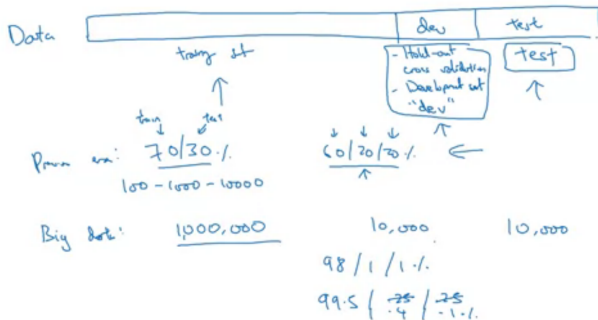 Data
dev
test
traing set
- Hold-out
cross validation
- Development set
"dev"
test
train
test
70/30%
60/20/20%
100-1000-10000
Big data:
1,000,000
10,000
10,000
98/1/1%
99.5 / .25 / .25
.4 .1%